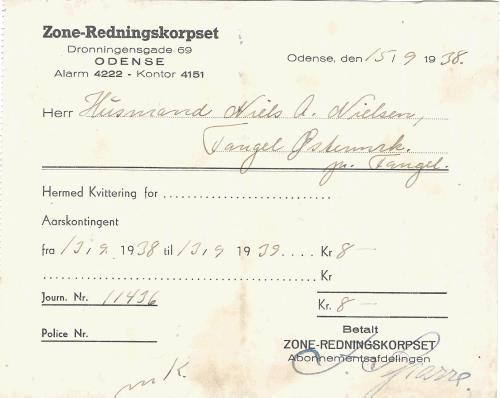 Zone-Redningskorpset
Dronningensgade 69
ODENSE
Alarm 4222 - Kontor 4151
Odense, den 15/9 1938.
Herr Husmand Niels A. Nielsen,
Tangel Østermrk.
pr. Tangel.
Hermed Kvittering for
Aarskontingent
fra 13/9 1938 til 13/9 1939.... Kr 8 —
Kr
Journ. Nr. 11436
Kr. 8 —
Police Nr.
Betalt
ZONE-REDNINGSKORPSET
Abonnementsafdelingen
mK.